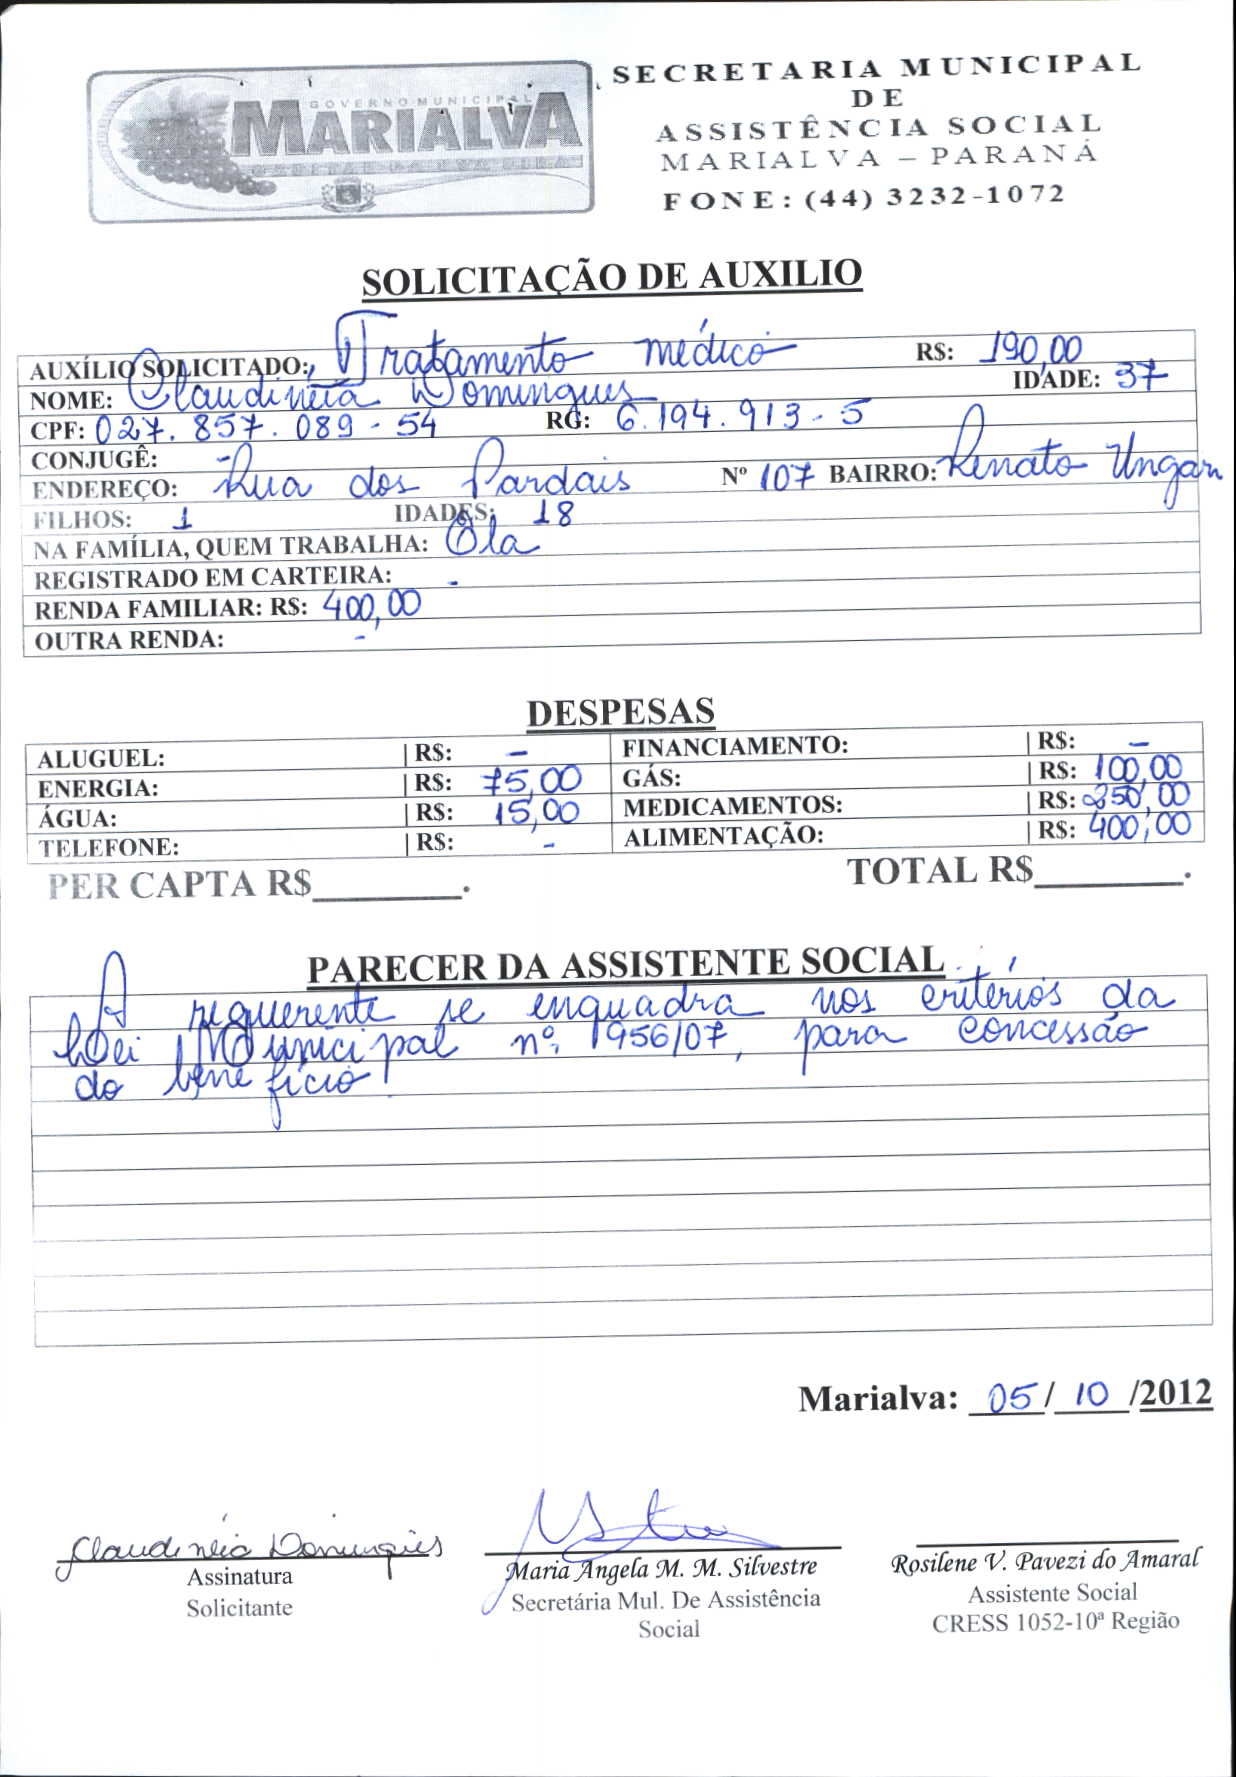 GOVERNO MUNICIPAL
MARIALVA
SECRETARIA MUNICIPAL
DE
ASSISTÊNCIA SOCIAL
MARIALVA – PARANÁ
FONE: (44) 3232-1072
SOLICITAÇÃO DE AUXILIO
AUXÍLIO SOLICITADO: Tratamento médico R$: 190,00
NOME: Claudinéia Domingues IDADE: 37
CPF: 027.857.089-54 RG: 6.194.913-5
CONJUGÊ: -
ENDEREÇO: Rua dos Pardais Nº 107 BAIRRO: Renato Ungari
FILHOS: 1 IDADES: 18
NA FAMÍLIA, QUEM TRABALHA: Ela
REGISTRADO EM CARTEIRA: -
RENDA FAMILIAR: R$: 400,00
OUTRA RENDA: -
DESPESAS
ALUGUEL: | R$: - FINANCIAMENTO: | R$: -
ENERGIA: | R$: 75,00 GÁS: | R$: 100,00
ÁGUA: | R$: 15,00 MEDICAMENTOS: | R$: 250,00
TELEFONE: | R$: - ALIMENTAÇÃO: | R$: 400,00
PER CAPTA R$________. TOTAL R$________.
PARECER DA ASSISTENTE SOCIAL
A requerente se enquadra nos critérios da
Lei Municipal nº. 1956/07, para concessão
do benefício!
Marialva: 05/10/2012
Claudinéia Domingues
Assinatura
Solicitante
Maria Angela M. M. Silvestre
Secretária Mul. De Assistência
Social
Rosilene V. Pavezi do Amaral
Assistente Social
CRESS 1052-10ª Região